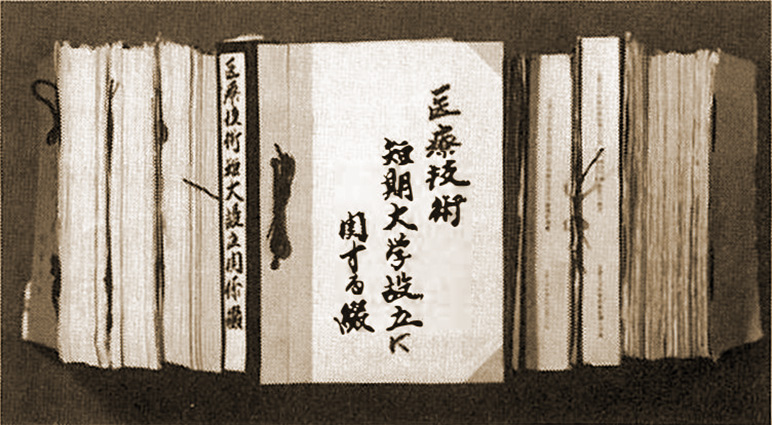 医療技術
短期大学設立に
関する綴
医療技術短大設立関係綴